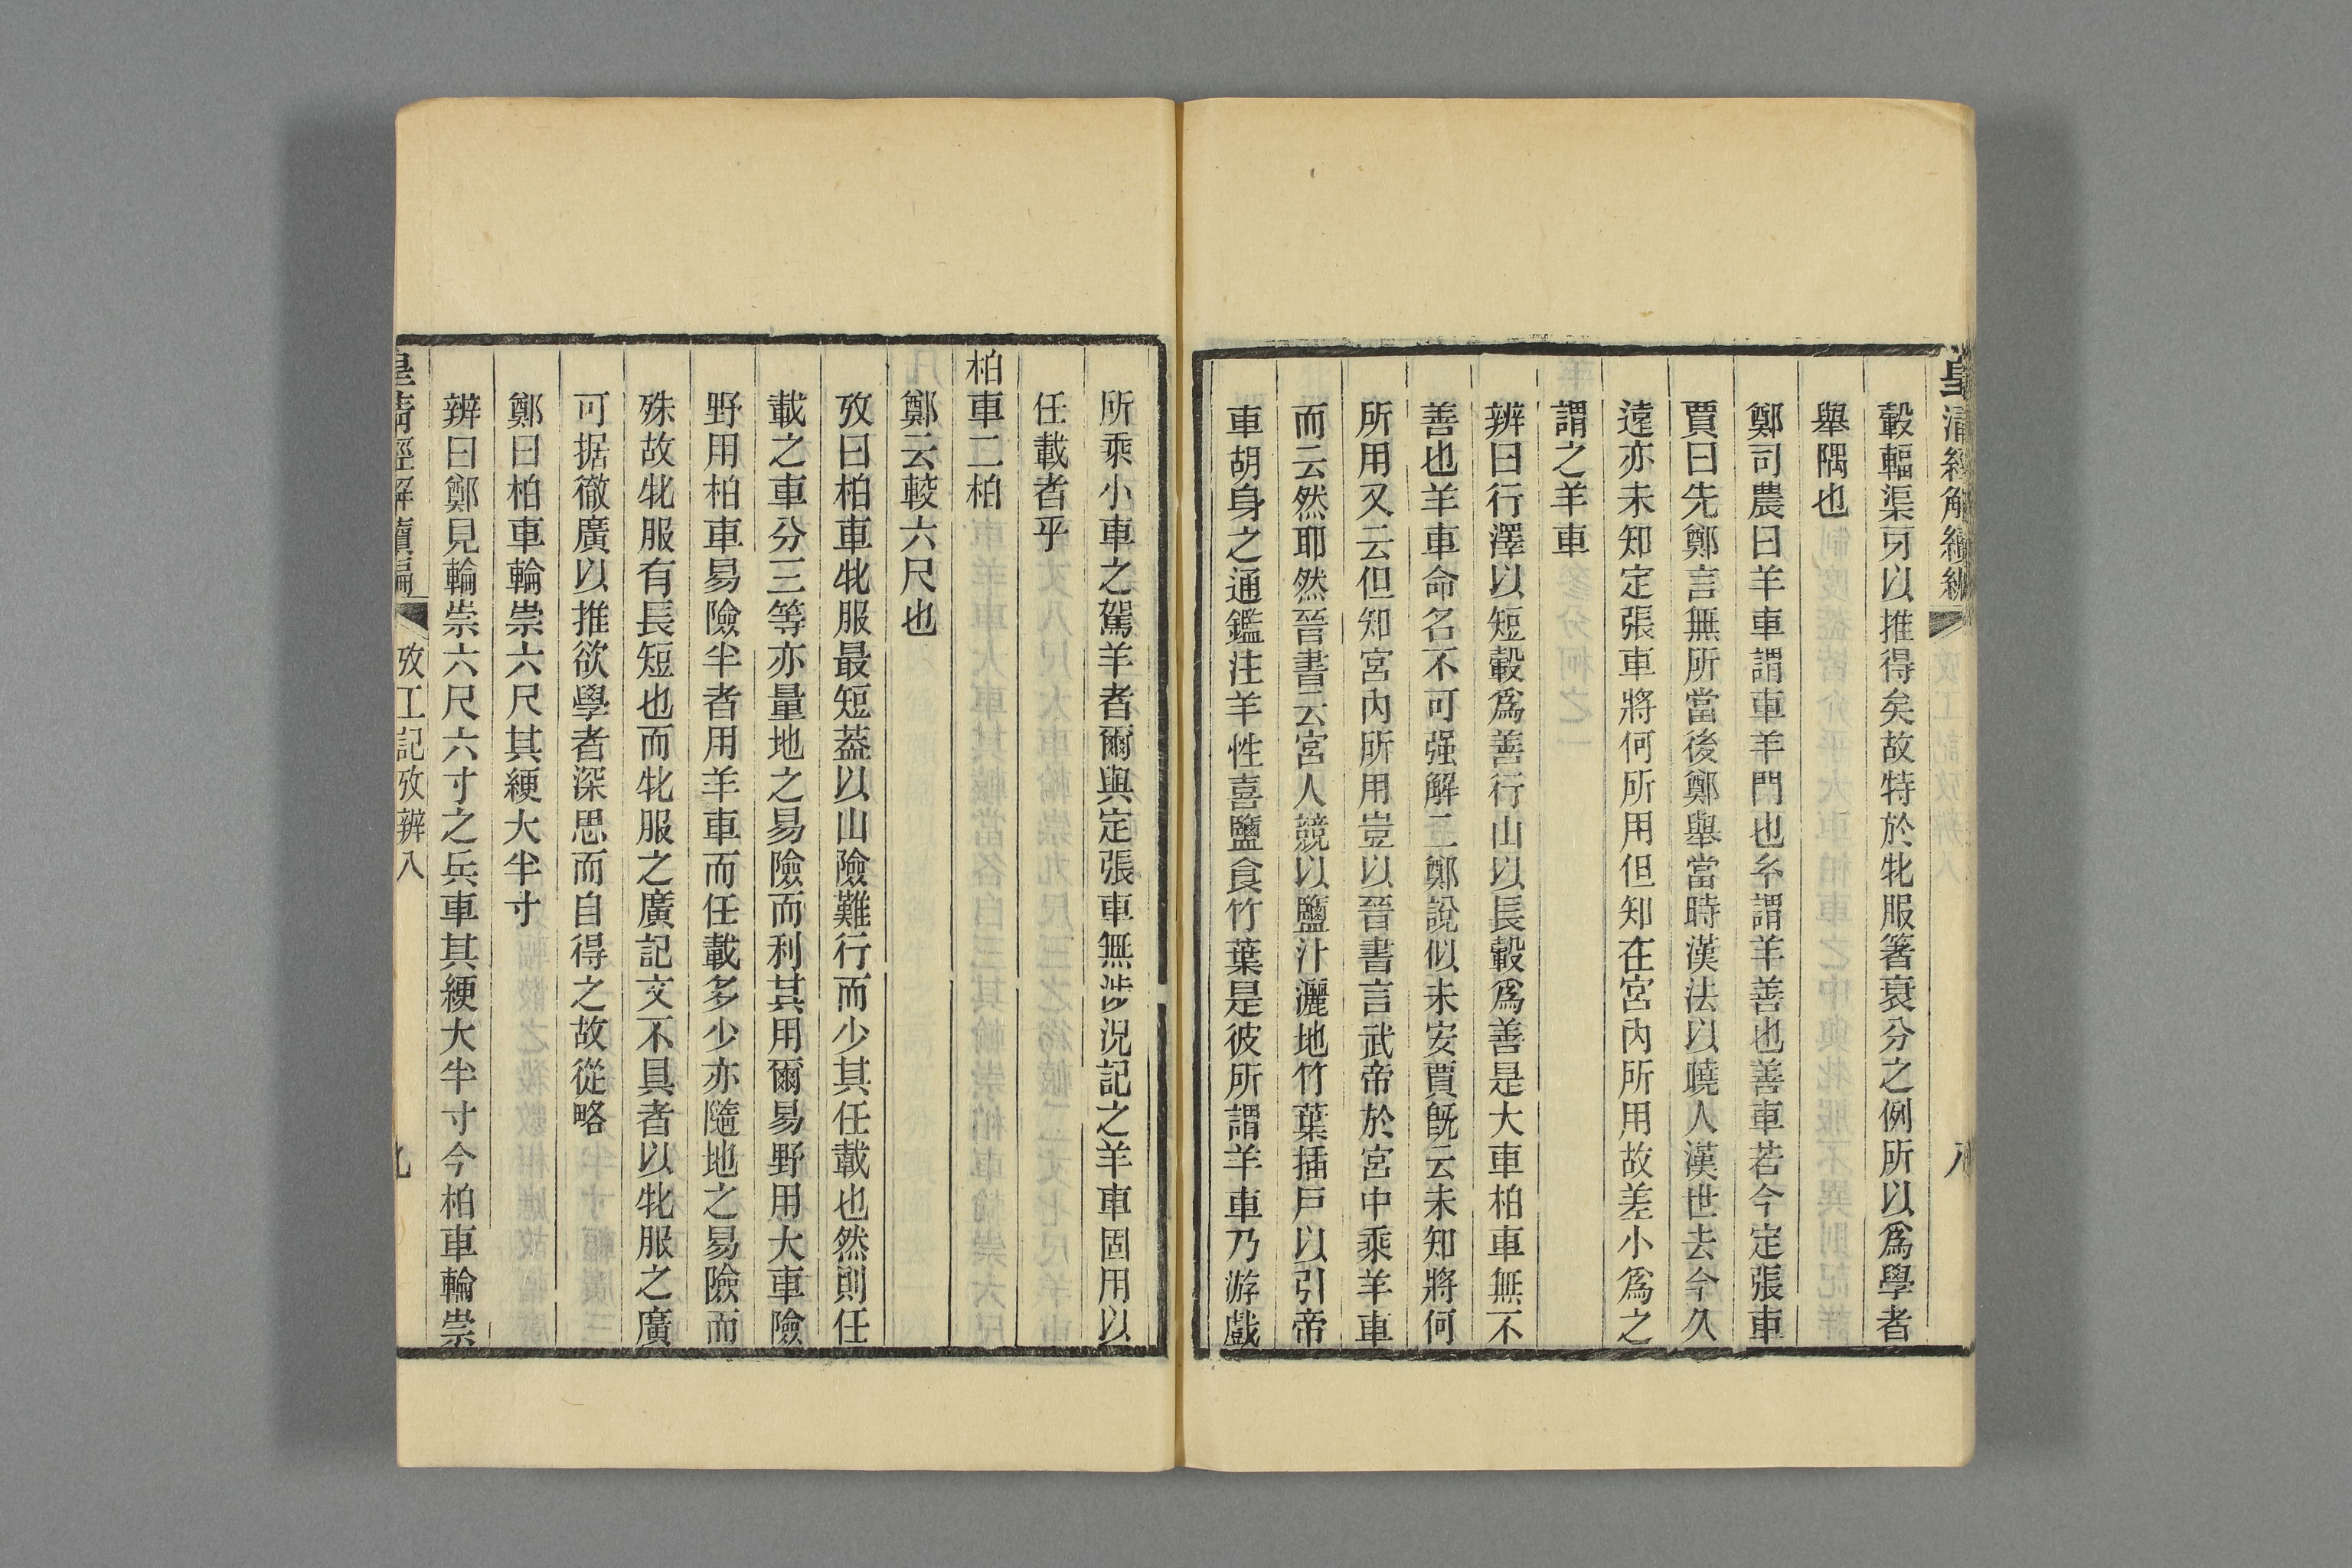 皇清經解續編 八
轂輻渠牙以推得矣故特於牝服箸衰分之例所以爲學者
舉隅也
鄭司農曰羊車謂車羊門也糸謂羊善也善車若今定張車
賈曰先鄭言無所當後鄭舉當時漢法以曉人漢世去今久
遠亦未知定張車將何所用但知在宮內所用故差小爲之
謂之羊車
辨曰行澤以短轂爲善行山以長轂爲善是大車柏車無不
善也羊車命名不可强解二鄭說似未安賈旣云未知將何
所用又云但知宮內所用豈以晉書言武帝於宮中乘羊車
而云然耶然晉書云宮人競以鹽汁灑地竹葉插戶以引帝
車胡身之通鑑注羊性喜鹽食竹葉是彼所謂羊車乃游戲
所乘小車之駕羊者爾與定張車無涉況記之羊車固用以
任載者乎
柏車二柏
鄭云較六尺也
攷曰柏車牝服最短葢以山險難行而少其任載也然則任
載之車分三等亦量地之易險而利其用爾易野用大車險
野用柏車易險半者用羊車而任載多少亦隨地之易險而
殊故牝服有長短也而牝服之廣記文不具者以牝服之廣
可据徹廣以推欲學者深思而自得之故從略
鄭曰柏車輪崇六尺其綆大半寸
辨曰鄭見輪崇六尺六寸之兵車其綆大半寸今柏車輪崇
皇清經解續編 攷工記攷辨八 九